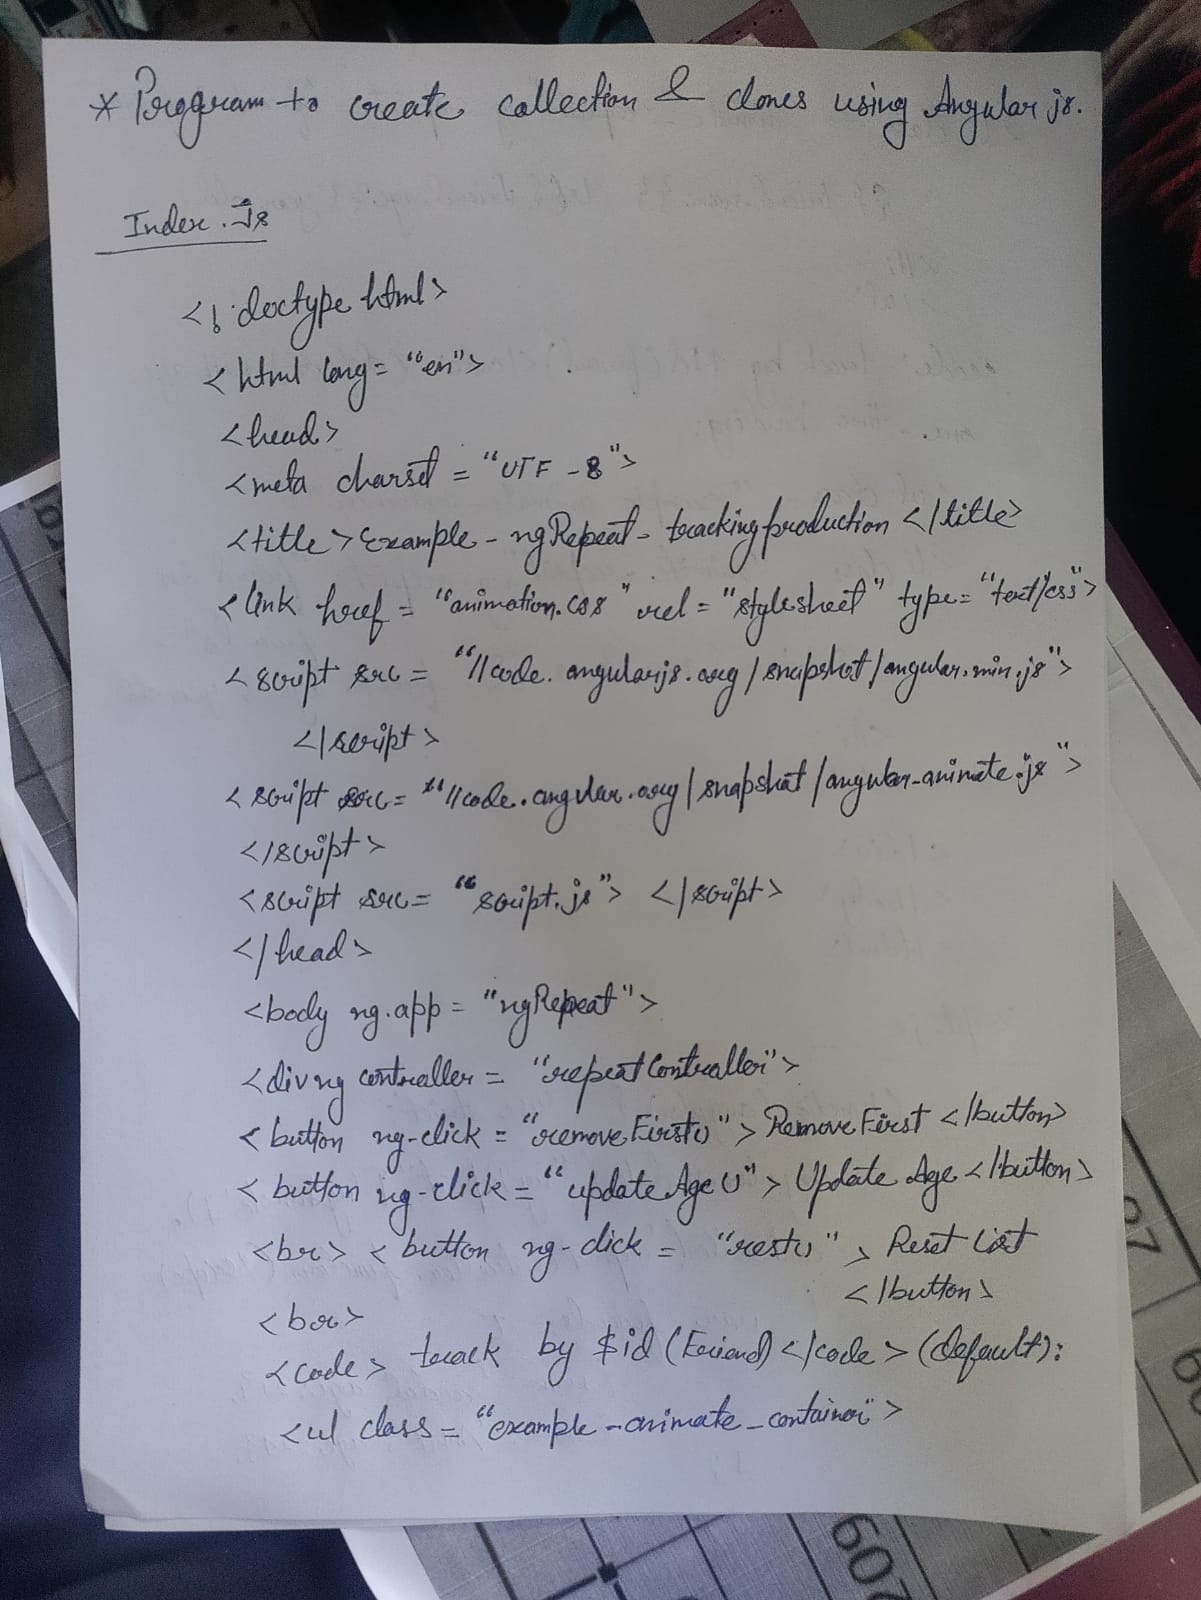 * Program to create collection & clones using Angular js.
Index.Js
<!doctype html>
<html lang="en">
<head>
<meta charset="UTF-8">
<title>Example-ngRepeat-tracking production</title>
<link href="animation.css" rel="stylesheet" type="text/css">
<script src="//code.angularjs.org/snapshot/angular.min.js">
</script>
<script src="//code.angular.org/snapshot/angular-animate.js">
</script>
<script src="script.js"></script>
</head>
<body ng.app="ngRepeat">
<div ng controller="repeatController">
<button ng-click="removeFirst()">Remove First</button>
<button ng-click="updateAge()">Update Age</button>
<br><button ng-click="rest()">Reset List
</button>
<br>
<code> track by $id (Friend)</code>(default):
<ul class="example-animate_container">
97
60
209